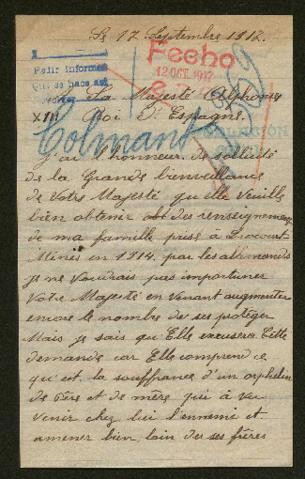 Le 17 Septembre 1917.
Pedir informes
Que se hace así
Fecho
12 OCT. 1917
Sa Majesté Alphonse
XIII Roi d'Espagne.
Colmant
J'ai l'honneur de sollicité
de la Grande bienveillance
de Votre Majesté qu'elle veuille
bien obtenir des renseignements
de ma famille prise à
Mines en 1914. par les allemands
je ne voudrais pas importuner
Votre Majesté en venant augmenter
encore le nombre de ses protéger
Mais je sais que Elle excusera Cette
demande car Elle comprend ce
qu'est la souffrance d'un orphelin
de Père et de mère qui à vu
venir chez lui l'ennemi et
amener bien loin des ses frères